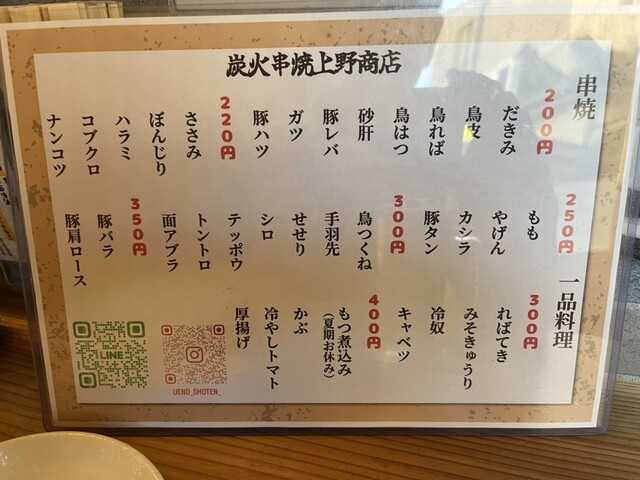 炭火串焼上野商店
串焼
200円
だきみ
鳥皮
鳥ればー
鳥はつ
砂肝
豚レバ
ガツ
豚ハツ
220円
ささみ
ぼんじり
ハラミ
コブクロ
ナンコツ
250円
もも
やげん
カシラ
豚タン
300円
鳥つくね
手羽先
せせり
シロ
テッポウ
トントロ
面アブラ
350円
豚バラ
豚肩ロース
一品料理
300円
ればてき
みそきゅうり
冷奴
キャベツ
400円
もつ煮込み
(夏期お休み)
かぶ
冷やしトマト
厚揚げ
LINE
UENO_SHOTEN_